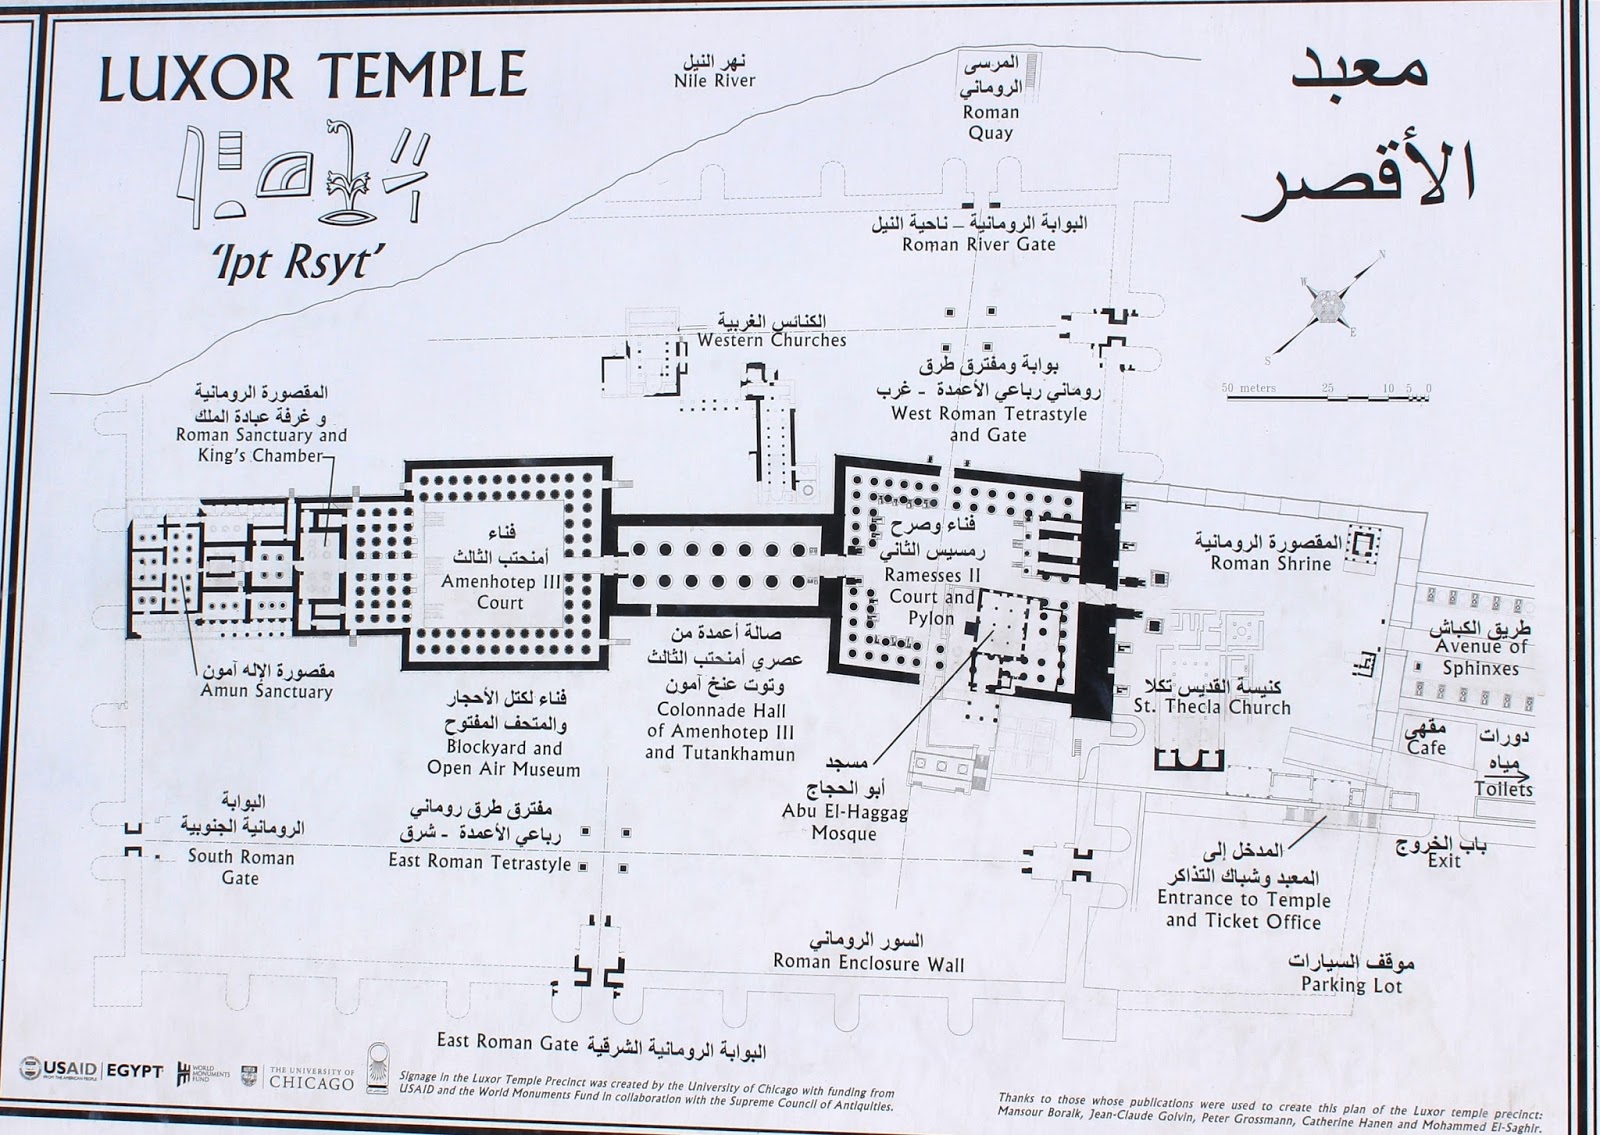 LUXOR TEMPLE
'Ipt Rsyt'
معبد
الأقصر
نهر النيل
Nile River
المرسى
الروماني
Roman
Quay
البوابة الرومانية – ناحية النيل
Roman River Gate
N
W
E
S
50 meters 25 10 5 0
الكنائس الغربية
Western Churches
بوابة ومفترق طرق
روماني رباعي الأعمدة - غرب
West Roman Tetrastyle
and Gate
المقصورة الرومانية
و غرفة عبادة الملك
Roman Sanctuary and
King's Chamber
فناء
أمنحتب الثالث
Amenhotep III
Court
فناء وصرح
رمسيس الثاني
Ramesses II
Court and
Pylon
المقصورة الرومانية
Roman Shrine
طريق الكباش
Avenue of
Sphinxes
مقصورة الإله آمون
Amun Sanctuary
فناء لكتل الأحجار
والمتحف المفتوح
Blockyard and
Open Air Museum
صالة أعمدة من
عصري أمنحتب الثالث
وتوت عنخ آمون
Colonnade Hall
of Amenhotep III
and Tutankhamun
كنيسة القديس تكلا
St. Thecla Church
مقهى
Cafe
دورات
مياه
Toilets
مسجد
أبو الحجاج
Abu El-Haggag
Mosque
البوابة
الرومانية الجنوبية
South Roman
Gate
مفترق طرق روماني
رباعي الأعمدة - شرق
East Roman Tetrastyle
المدخل إلى
المعبد وشباك التذاكر
Entrance to Temple
and Ticket Office
باب الخروج
Exit
السور الروماني
Roman Enclosure Wall
موقف السيارات
Parking Lot
East Roman Gate البوابة الرومانية الشرقية
USAID EGYPT
FROM THE AMERICAN PEOPLE
WORLD
MONUMENTS
FUND
THE UNIVERSITY OF
CHICAGO
Signage in the Luxor Temple Precinct was created by the University of Chicago with funding from
USAID and the World Monuments Fund in collaboration with the Supreme Council of Antiquities.
Thanks to those whose publications were used to create this plan of the Luxor temple precinct:
Mansour Boraik, Jean-Claude Golvin, Peter Grossmann, Catherine Hanen and Mohammed El-Saghir.